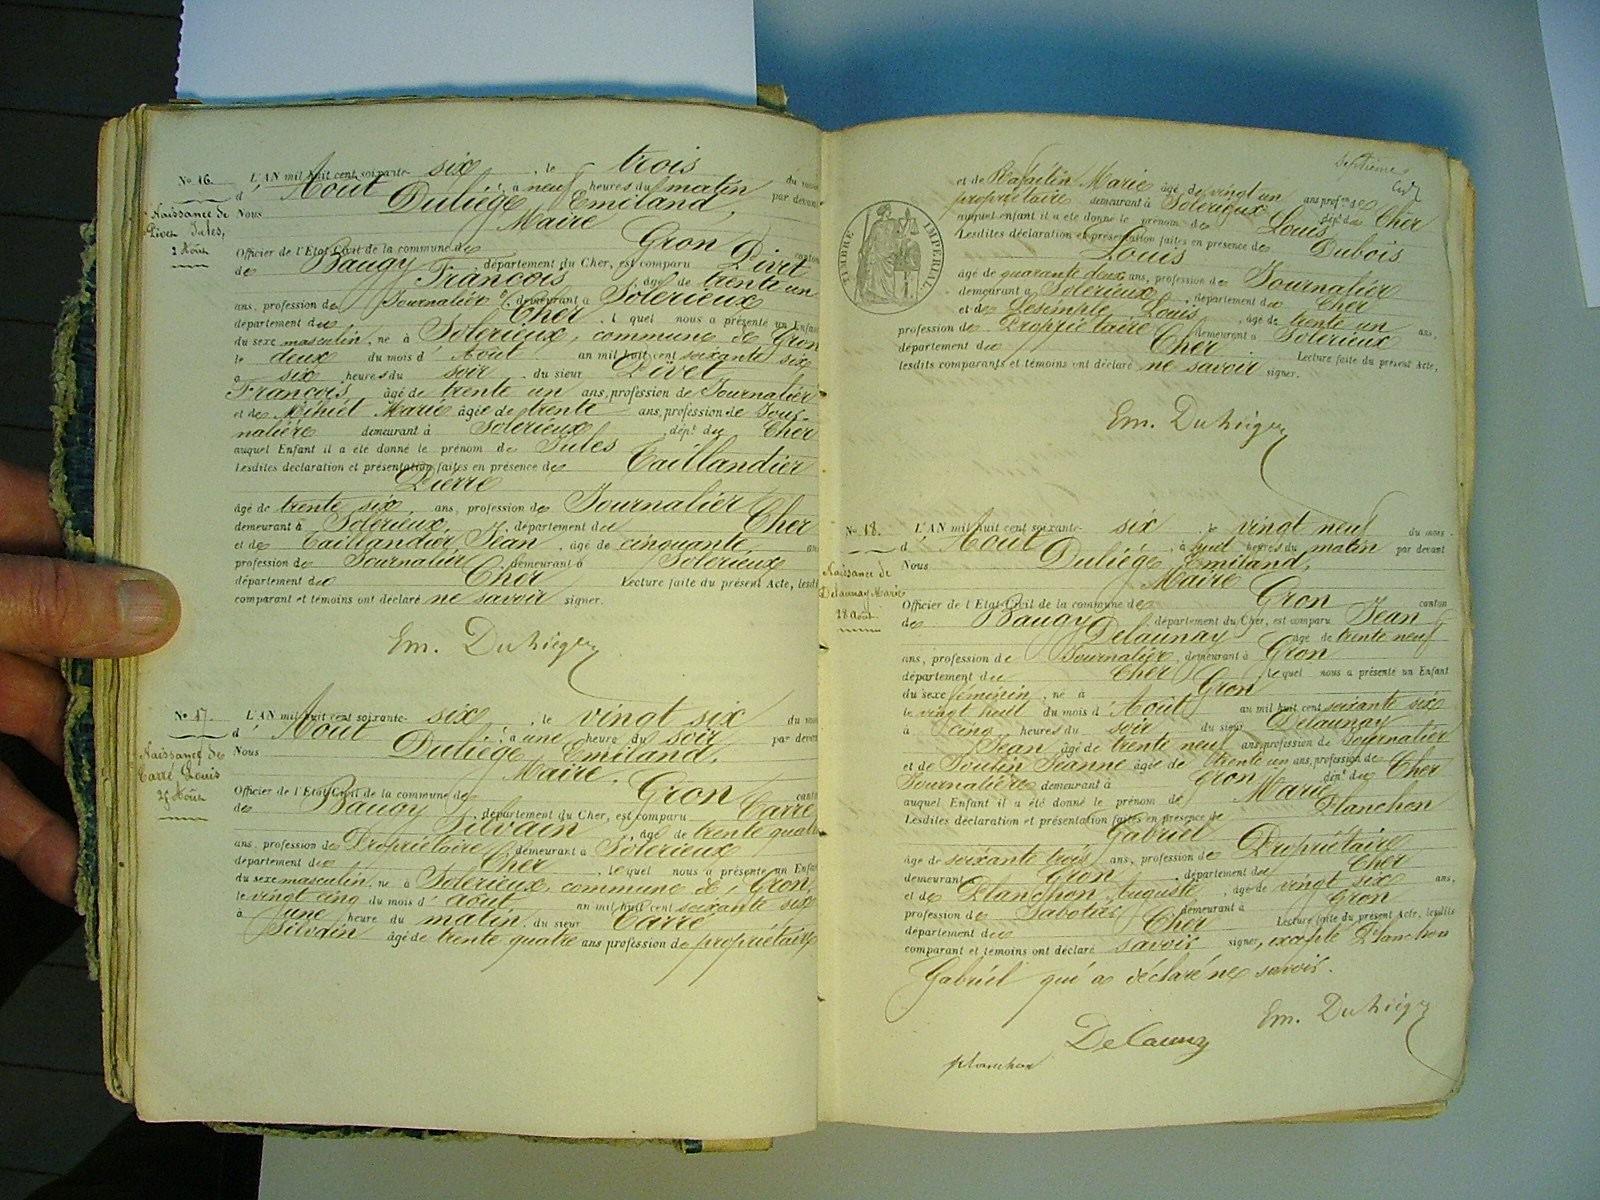 No 16.
Naissance de
Pivet Jules,
2 Août
L'AN mil huit cent soixante- six , le trois du mois
d' Août , à neuf heures du matin par devant
Nous Duliège Emiland,
Maire
Officier de l'Etat-Civil de la commune de Gron canton
de Baugy , département du Cher, est comparu Pivet
François , âgé de trente un
ans, profession de Journalier , demeurant à Solerieux
département du Cher , l quel nous a présenté un Enfant
du sexe masculin, né à Solerieux, commune de Gron
le deux du mois d' Août an mil huit cent soixante six
à six heures du soir du sieur Pivet
François, âgé de trente un ans, profession de Journalier
et de Marie âgée de trente ans, profession de Jour-
nalière demeurant à Solerieux , dépt du Cher
auquel Enfant il a été donné le prénom de Jules
Lesdites déclaration et présentation faites en présence de Taillandier
Pierre
âgé de trente six ans, profession de Journalier
demeurant à Solerieux, , département du Cher
et de Taillandier Jean , âgé de cinquante ans
profession de Journalier demeurant à Solerieux
département du Cher Lecture faite du présent Acte, lesdits
comparant et témoins ont déclaré ne savoir signer.
Em. Duliège
No 17.
Naissance de
Carré Louis
25 Août
L'AN mil huit cent soixante- six , le vingt six du mois
d' Août , à une heure du soir par devant
Nous Duliège Emiland,
Maire.
Officier de l'Etat-Civil de la commune de Gron canton
de Baugy , département du Cher, est comparu Carré
Silvain , âgé de trente quatre
ans, profession de Propriétaire , demeurant à Solerieux
département du Cher , lequel nous a présenté un Enfant
du sexe masculin, né à Solerieux, commune de Gron,
le vingt cinq du mois d' août an mil huit cent soixante six
à une heure du matin du sieur Carré
Silvain âgé de trente quatre ans profession de propriétaire
septième
et de Marie âgée de vingt un ans prof on de
propriétaire demeurant à Solerieux dépt du Cher
auquel enfant il a été donné le prénom de Louis
Lesdites déclaration et présentation faites en présence de Dubois
Louis
TIMBRE IMPERIAL
âgé de quarante deux ans, profession de Journalier
demeurant à Solerieux , département du Cher
et de Lesimple Louis , âgé de trente un ans,
profession de Propriétaire demeurant à Solerieux
département du Cher Lecture faite du présent Acte,
lesdits comparants et témoins ont déclaré ne savoir signer.
Em. Duliège
No 18.
Naissance de
Delaunay Marie
28 Août
L'AN mil huit cent soixante- six , le vingt neuf du mois
d' Août , à huit heures du matin par devant
Nous Duliège Emiland,
Maire
Officier de l'Etat-Civil de la commune de Gron canton
de Baugy , département du Cher, est comparu Jean
Delaunay âgé de trente neuf
ans, profession de Journalier, demeurant à Gron
département du Cher , lequel nous a présenté un Enfant
du sexe féminin , né à Gron
le vingt huit du mois d' Août an mil huit cent soixante six
à Cinq heures du soir du sieur Delaunay
Jean âgé de trente neuf ans profession de Journalier
et de Jeanne âgée de trente un ans, profession de
Journalière demeurant à Gron dépt du Cher
auquel Enfant il a été donné le prénom de Marie
Lesdites déclaration et présentation faites en présence de Planchon
Gabriel
âgé de soixante trois ans, profession de Propriétaire
demeurant Gron , département du Cher
et de Planchon Auguste , âgé de vingt six ans,
profession de Sabotier demeurant à Gron
département du Cher Lecture faite du présent Acte, lesdits
comparant et témoins ont déclaré savoir signer, excepté Planchon
Gabriel qui a déclaré ne savoir.
Em. Duliège
Delaunay
planchon